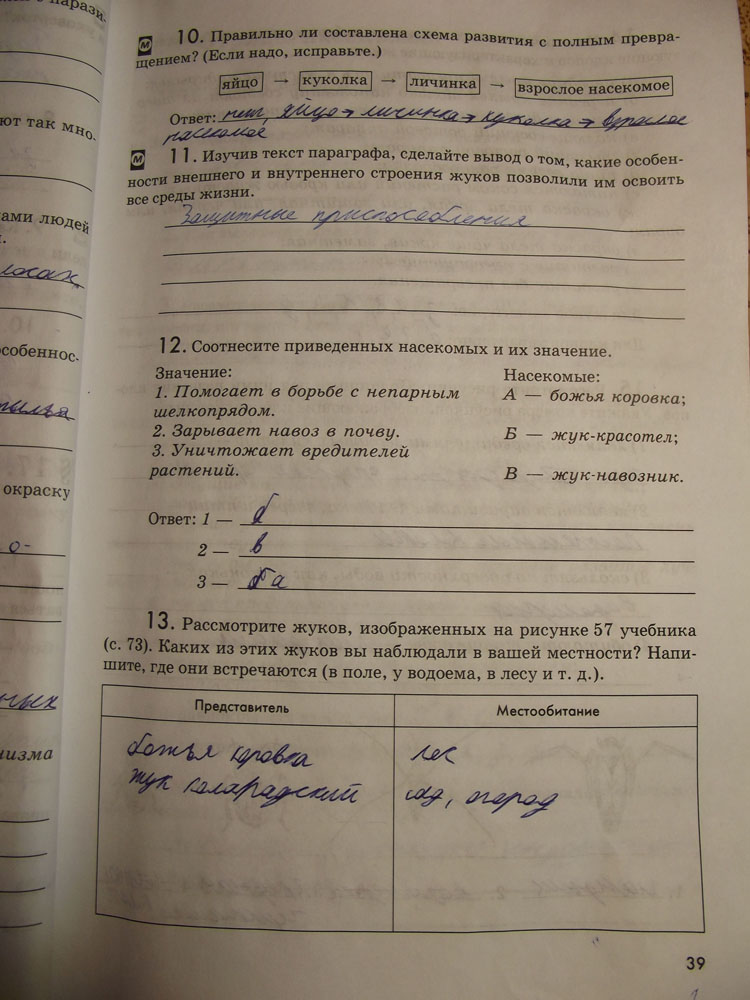 10. Правильно ли составлена схема развития с полным превра-
щением? (Если надо, исправьте.)
яйцо → куколка → личинка → взрослое насекомое
Ответ: нет, яйцо → личинка → куколка → взрослое
насекомое
11. Изучив текст параграфа, сделайте вывод о том, какие особен-
ности внешнего и внутреннего строения жуков позволили им освоить
все среды жизни.
Защитные приспособления
12. Соотнесите приведенных насекомых и их значение.
Значение:
1. Помогает в борьбе с непарным
шелкопрядом.
2. Зарывает навоз в почву.
3. Уничтожает вредителей
растений.
Насекомые:
А — божья коровка;
Б — жук-красотел;
В — жук-навозник.
Ответ: 1 — б
2 — в
3 — а
13. Рассмотрите жуков, изображенных на рисунке 57 учебника
(с. 73). Каких из этих жуков вы наблюдали в вашей местности? Напи-
шите, где они встречаются (в поле, у водоема, в лесу и т. д.).
Представитель
Местообитание
божья коровка
лес
жук коларадский
сад, огород
39
ют так мно.
ами людей
особеннос-
окраску
низма